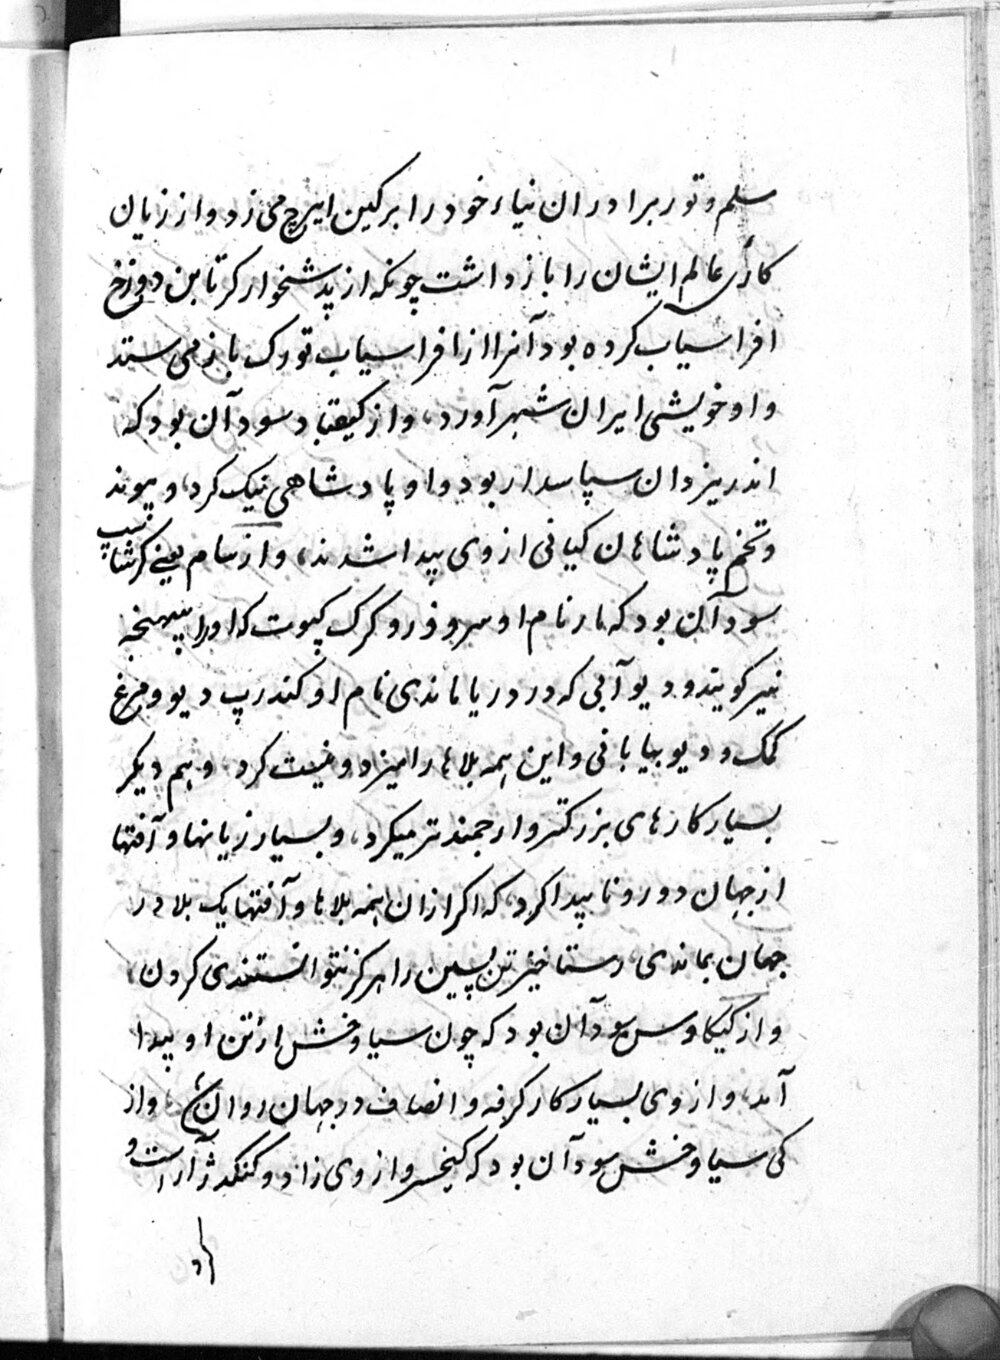 سلم و تور برادران نیاء خود را بر کین ایرج می زد و از زیان
کاری عالم ایشان را باز داشت چونکه از پدشخوار کر تا بن دوزخ
افراسیاب کرده بود آنرا از افراسیاب تورک باز می ستد
و او خویشی ایران شهر آورد، و از کیقباد سود آن بود که
اندر یزدان سپاسدار بود و او پادشاهی نیک کرد، و پیوند
و تخم پادشاهان کیانی از وی پیدا شدند، و از سام یعنی کرشاسپ
سود آن بود که مار نام او سروور و کرک کپوت که او را پیهنجه
نیر کویند و دیو آبی که در دریا ماندی نام او کندرپ دیو و مرغ
کمک و دیو بیابانی و این همه بلاها را میزد و نیست کرد، و هم دیکر
بسیار کارهای بزرکتر و ارجمند تر میکرد، و بسیار زیانها و آفتها
از جهان دور و ناپیدا کرد، که اکر از ان همه بلاها و آفتها یک بلا در
جهان بماندی، رستاخیز تن پسین را هرکز نتوانستندی کردن،
و از کیکاوس سود آن بود که چون سیاوخش از تن او پیدا
آمد، و از وی بسیار کار کرفه و انصاف در جهان روان، و از
کی سیاوخش سود آن بود که کیخسرو از وی زاد و کنکدژ آراست و